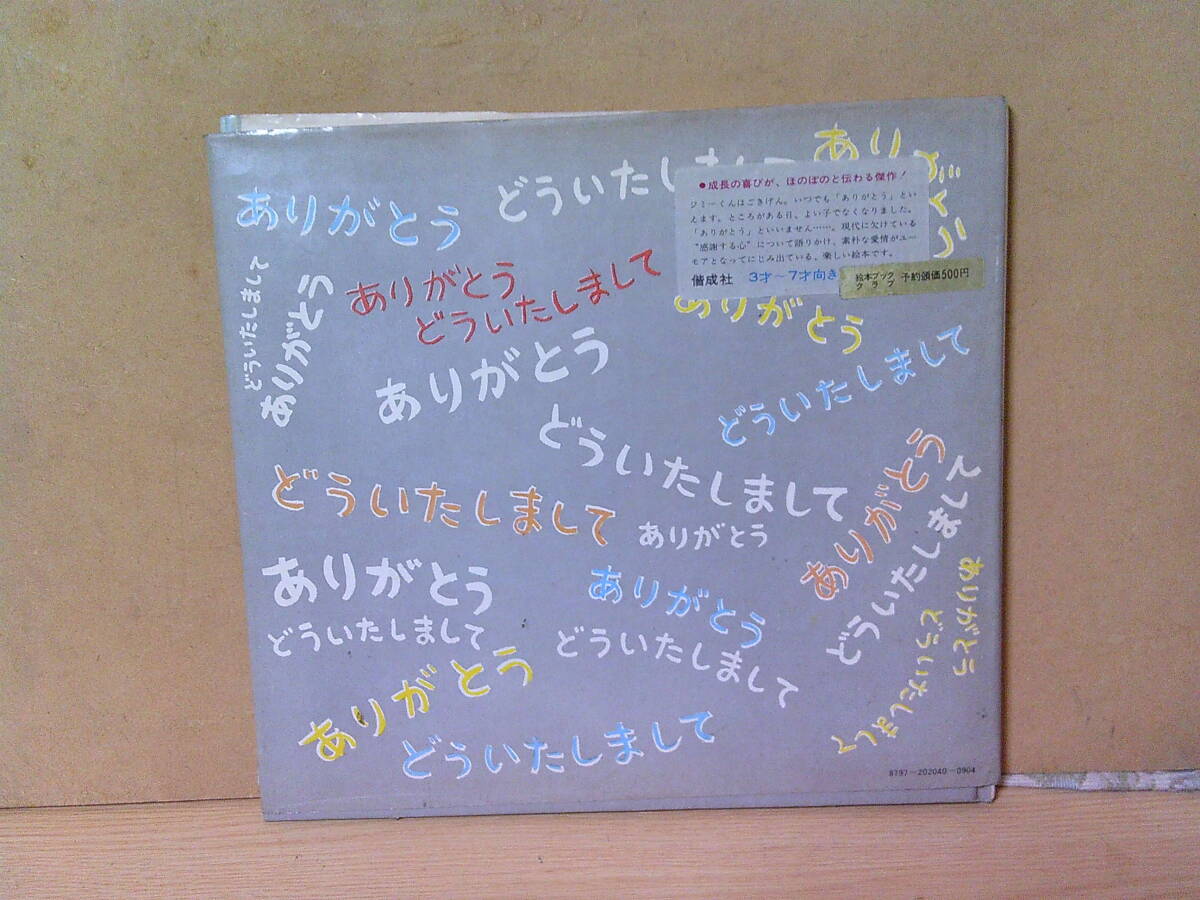 ありがとう
どういたしまして
ありがとう
● 成長の喜びが、ほのぼのと伝わる傑作!
ジミーくんはごきげん。いつでも「ありがとう」とい
えます。ところがある日、よい子でなくなりました。
「ありがとう」といいません……。現代に欠けている
“感謝する心”について語りかけ、素朴な愛情がユー
モアとなってにじみ出ている、楽しい絵本です。
偕成社 3才～7才向き
絵本ブック
クラブ 予約頒価500円
どういたしまして
ありがとう
ありがとう
どういたしまして
ありがとう
ありがとう
どういたしまして
どういたしまして
どういたしまして
ありがとう
ありがとう
どういたしまして
ありがとう
どういたしまして
ありがとう
どういたしまして
ありがとう
どういたしまして
ありがとう
どういたしまして
8797-202040-0904